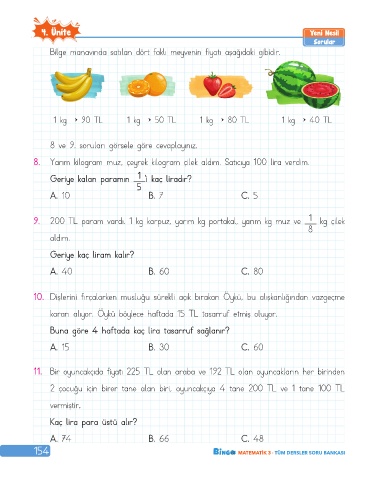 4. Ünite
Yeni Nesil
Sorular
Bilge manavında satılan dört farklı meyvenin fiyatı aşağıdaki gibidir.
1 kg → 90 TL 1 kg → 50 TL 1 kg → 80 TL 1 kg → 40 TL
8 ve 9. soruları görsele göre cevaplayınız.
8. Yarım kilogram muz, çeyrek kilogram çilek aldım. Satıcıya 100 lira verdim.
Geriye kalan paramın 1/5 'i kaç liradır?
A. 10 B. 7 C. 5
9. 200 TL param vardı. 1 kg karpuz, yarım kg portakal, yarım kg muz ve 1/8 kg çilek
aldım.
Geriye kaç liram kalır?
A. 40 B. 60 C. 80
10. Dişlerini fırçalarken musluğu sürekli açık bırakan Öykü, bu alışkanlığından vazgeçme
kararı alıyor. Öykü böylece haftada 15 TL tasarruf etmiş oluyor.
Buna göre 4 haftada kaç lira tasarruf sağlanır?
A. 15 B. 30 C. 60
11. Bir oyuncakçıda fiyatı 225 TL olan araba ve 192 TL olan oyuncakların her birinden
2 çocuğu için birer tane alan biri, oyuncakçıya 4 tane 200 TL ve 1 tane 100 TL
vermiştir.
Kaç lira para üstü alır?
A. 74 B. 66 C. 48
154
BİNGO MATEMATİK 3 - TÜM DERSLER SORU BANKASI